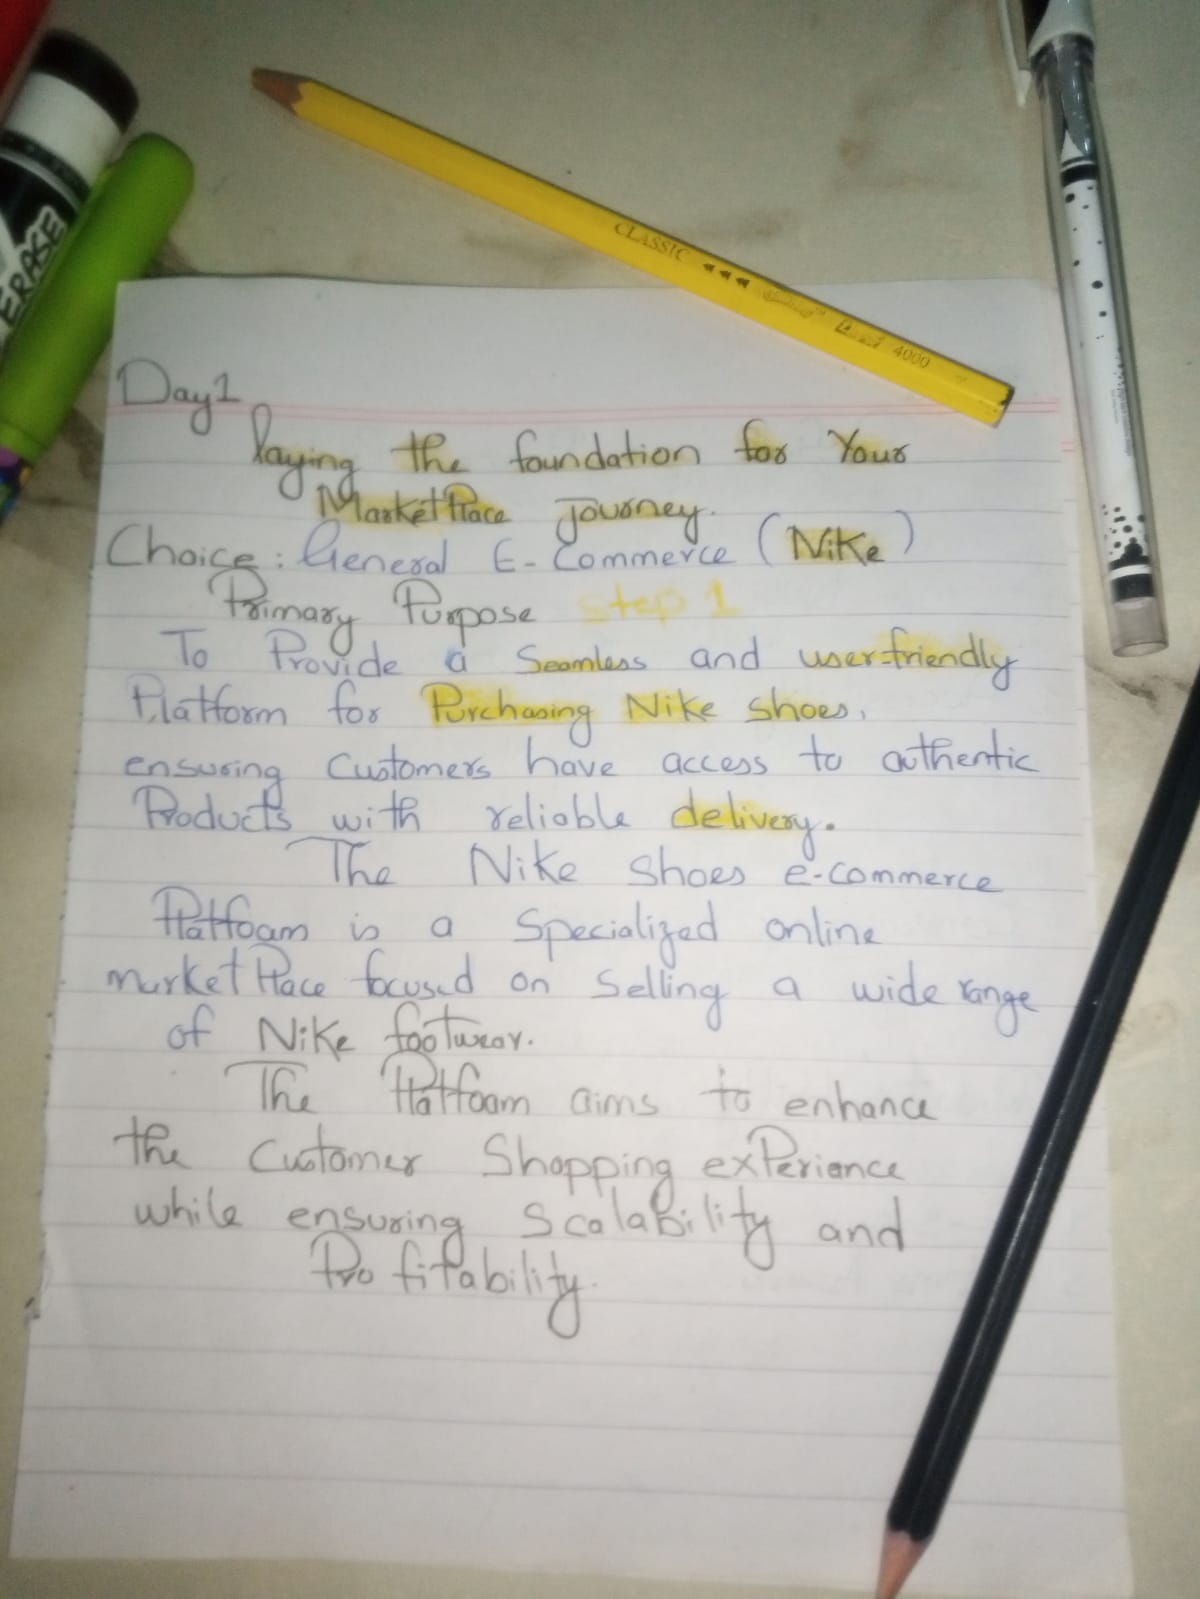 ERASE
CLASSIC
4000
Day 1
laying the foundation for Your
MarketPlace journey.
Choice: General E-Commerce (Nike)
Primary Purpose step 1
To Provide a Seamless and user-friendly
Platform for Purchasing Nike shoes,
ensuring Customers have access to authentic
Products with reliable delivery.
The Nike shoes e-commerce
Platfoam is a Specialized online
market Place focused on Selling a wide range
of Nike footwear.
The Platfoam aims to enhance
the Customer Shopping exPeriance
while ensuring Scalability and
Profitability.